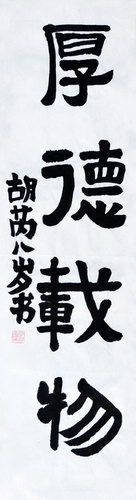 厚德載物
胡芮八岁书